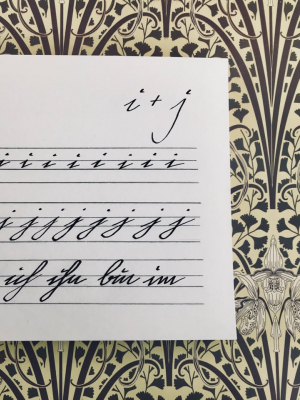 i + j
i i i i i i i i
j j j j j j j j
ich ihn bin im